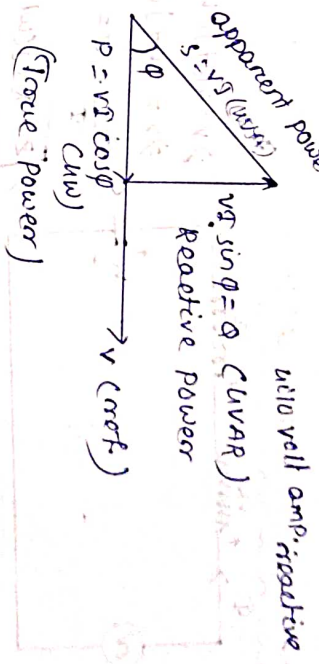 apparent power
S = VI (KVA)
φ
P = VI cosφ
(KW)
(True power)
VI sinφ = Q (KVAR)
Reactive power
V (ref.)
kilo volt amp. reactive